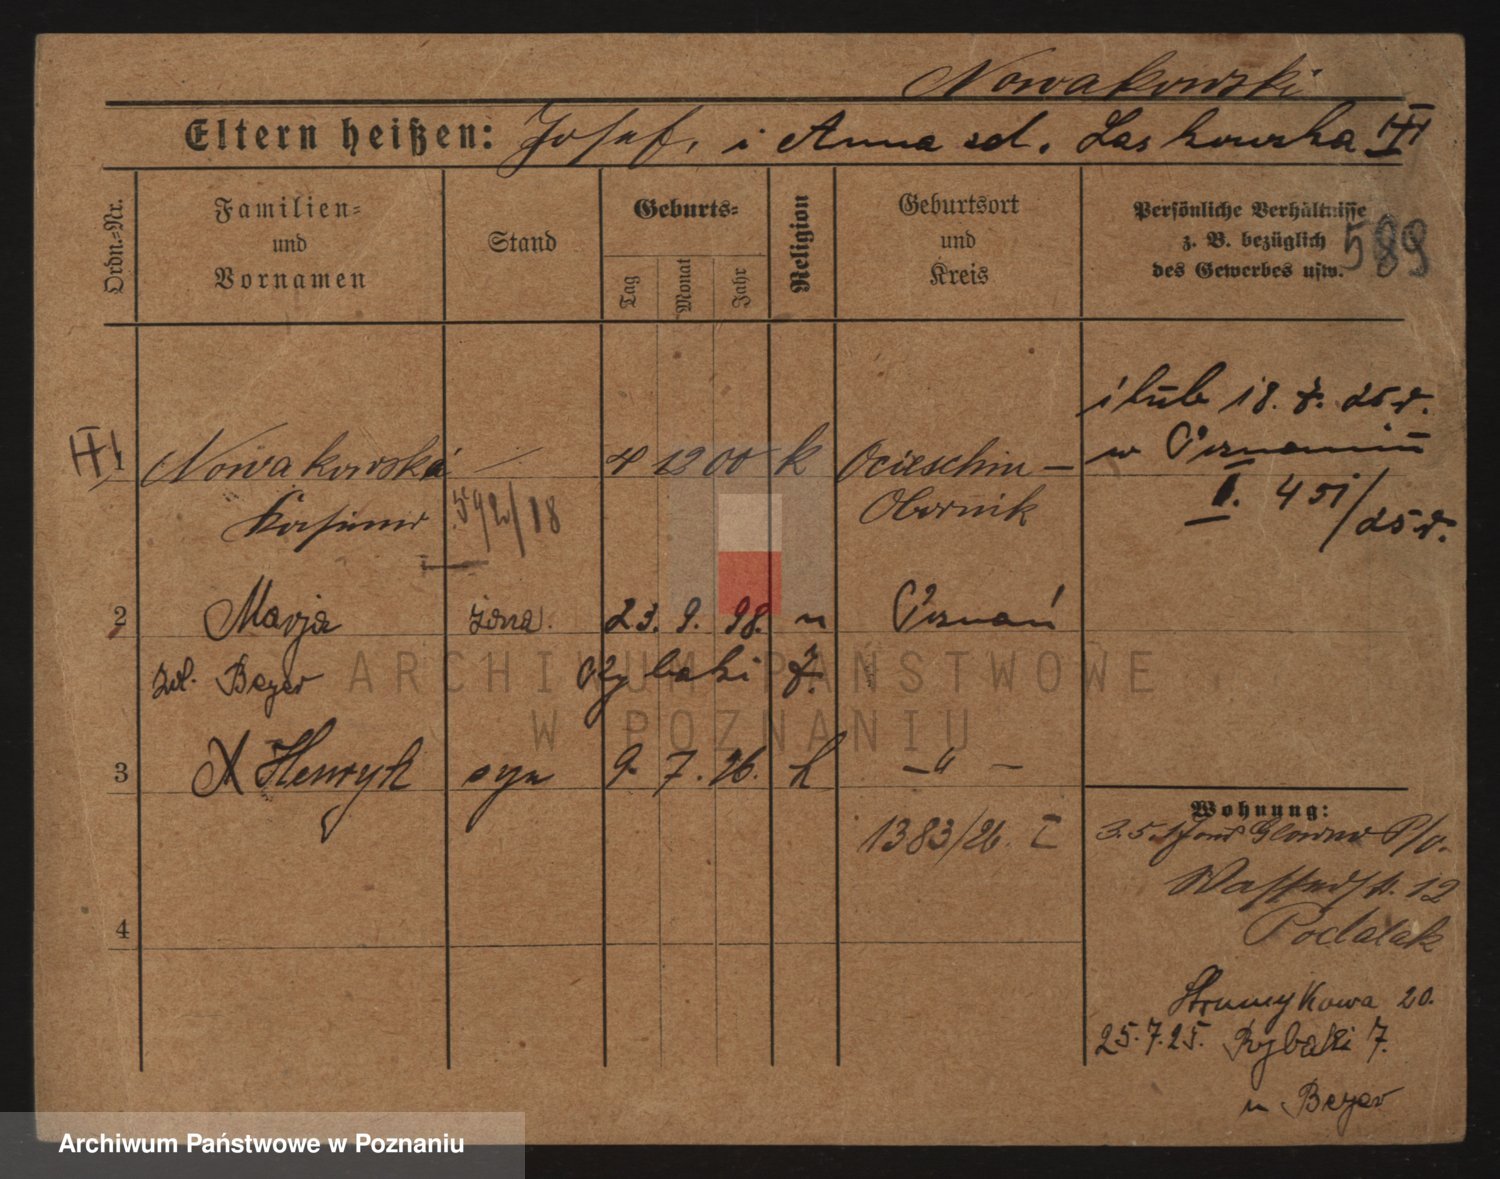 Nowakowski
Eltern heißen: Josef, i Anna zd. Laskowska III
Ordn.-Nr.
Familien- und Vornamen
Stand
Geburts-
Tag Monat Jahr
Religion
Geburtsort und Kreis
Persönliche Verhältnisse z. B. bezüglich des Gewerbes usw.
589
ślub 18. 7. 25 r.
w Poznaniu
I. 451/25 r.
1 Nowakowski 4 12 00 k Ocieschin –
Kasimir 592/18 Obornik
2 Marja żona. 23. 9. 98. " Poznań
zd. Beyer Rybaki 7.
3 X Henryk syn 9. 7. 26. k – " –
1383/26. I
4
Wohnung:
3.5. Glowno P/o.
Wasserstr. 12
Podalak
Strumykowa 20.
25.7.25. Rybaki 7.
u. Beyer
ARCHIWUM PAŃSTWOWE
W POZNANIU
Archiwum Państwowe w Poznaniu